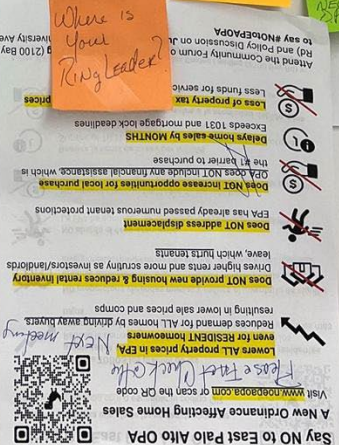 Where is
Your
RingLeader?
Say NO to East Palo Alto OPA
A New Ordinance Affecting Home Sales
Visit www.noepaopa.com or scan the QR code
Please Fact Check all
Next meeting
Lowers ALL property prices in EPA
even for RESIDENT homeowners
Reduces demand for ALL homes by driving away buyers
resulting in lower sale prices and comps
Does NOT provide new housing & reduces rental inventory
Drives higher rents and more scrutiny as investors/landlords
leave, which hurts tenants
Does NOT address displacement
EPA has already passed numerous tenant protections
Does NOT increase opportunities for local purchase
OPA does NOT include any financial assistance, which is
the #1 barrier to purchase
Delays home sales by MONTHS
Exceeds 1031 and mortgage lock deadlines
Loss of property tax prices
Less funds for
Attend the Community Forum
Rd and Policy and Discussion on (2100 Bay
to say #NOtoEPAOPA